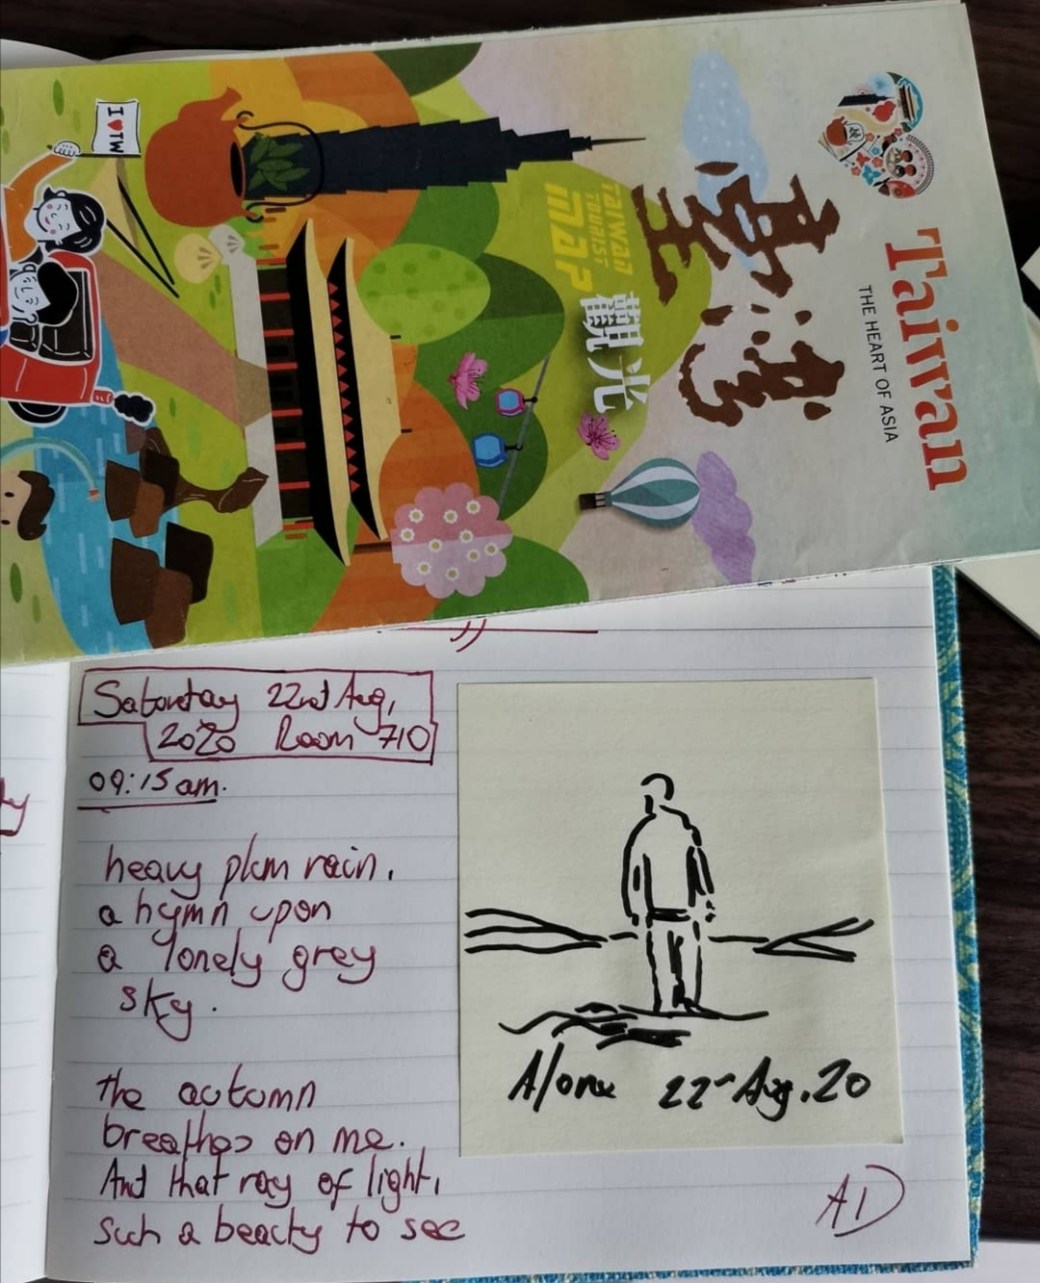 Taiwan
THE HEART OF ASIA
臺灣
Taiwan
TOURIST
map
觀光
I ♥ TW
Saturday 22nd Aug,
2020 Room 710
09:15am.
heavy plum rain,
a hymn upon
a lonely grey
sky.
the autumn
breathes on me.
And that ray of light,
such a beauty to see
Alone 22nd Aug. 20
AD